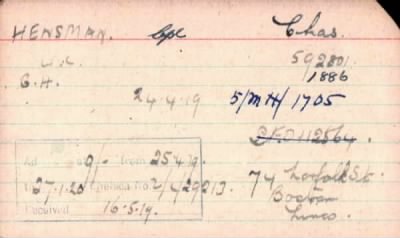 HENSMAN. Cpl Chas.
592801.
1886
G.H.
24-4-19 5/MH/1705
112564.
9/- from 25.4.19.
27.1.20 No. 2/1/29213. 74 Norfolk St.
Received 16-5-19. Boston
Lincs.